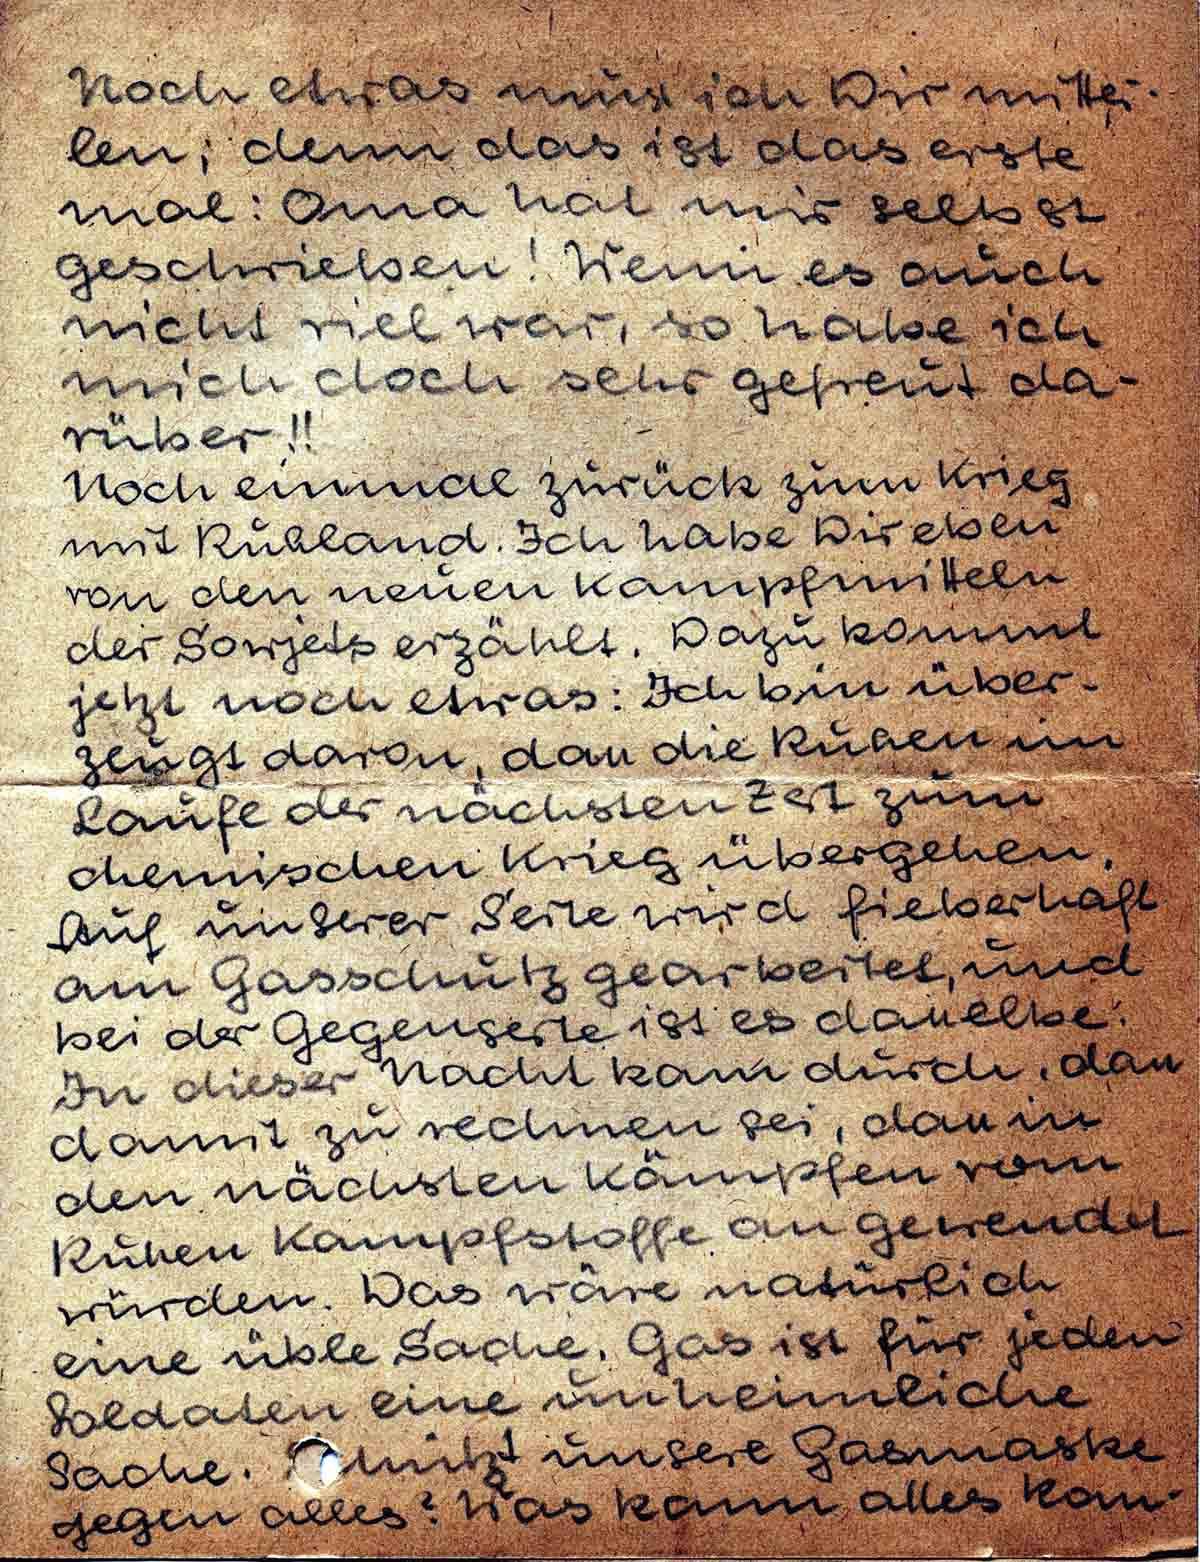 Noch etwas muß ich Dir mittei-
len; denn das ist das erste
mal: Oma hat mir selbst
geschrieben! Wenn es auch
nicht viel war, so habe ich
mich doch sehr gefreut da-
rüber!!
Noch einmal zurück zum Krieg
mit Rußland. Ich habe Dir eben
von den neuen Kampfmitteln
der Sowjets erzählt. Dazu kommt
jetzt noch etwas: Ich bin über-
zeugt davon, daß die Rußen im
Laufe der nächsten Zeit zum
chemischen Krieg übergehen.
Auf unserer Seite wird fieberhaft
am Gasschutz gearbeitet, und
bei der Gegenseite ist es daßelbe.
In dieser Nacht kam durch, daß
damit zu rechnen sei, daß in
den nächsten Kämpfen vom
Rußen Kampfstoffe angewendet
würden. Das wäre natürlich
eine üble Sache. Gas ist für jeden
Soldaten eine unheimliche
Sache. Schützt unsere Gasmaske
gegen alles? Was kann alles kom-